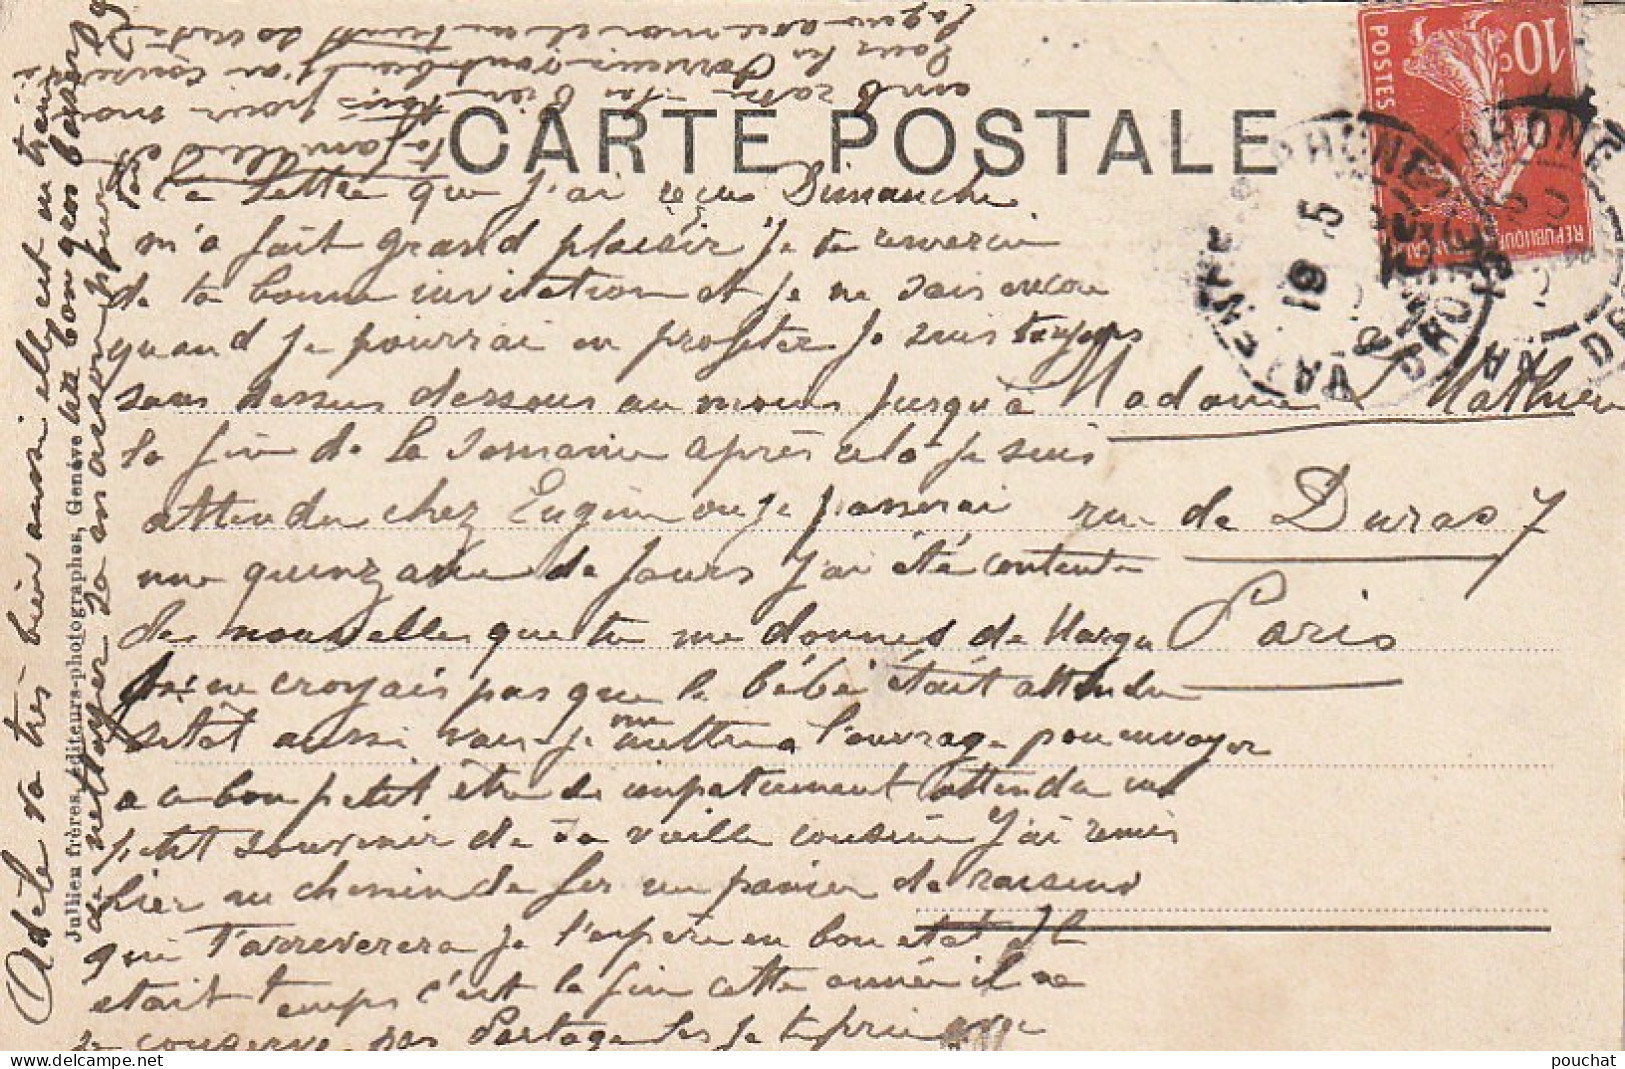 CARTE POSTALE
10c
POSTES
REPUBLIQUE
RHONE
19 5
ta lettre que j'ai reçue Dimanche
m'a fait grand plaisir je te remercie
de ta bonne invitation et je ne sais encore
quand je pourrai en profiter je suis toujours
sans dessus dessous au moins jusqu'à
la fin de la semaine après cela je suis
attendue chez Eugénie ou je passerai
une quinzaine de jours j'ai été contente
des nouvelles que tu me donnes de
ne croyais pas que le bébé était attendu
sitôt aussi vais-je me mettre a l'ouvrage pour envoyer
a ce bon petit être si impatiemment attendu un
petit souvenir de sa vieille cousine J'ai remis
hier au chemin de fer un panier de raisins
qui t'arrivera je l'espère en bon état il
était temps c'est la fin cette année il ne
se conserve pas Partage les je te prie avec
Madame L Mathieu
rue de Duras 7
Paris
Adèle va très bien aussi elle est en train
de nettoyer sa maison pour
bon gros baisers
Jullien frères, éditeurs-photographes, Genève
pouchat